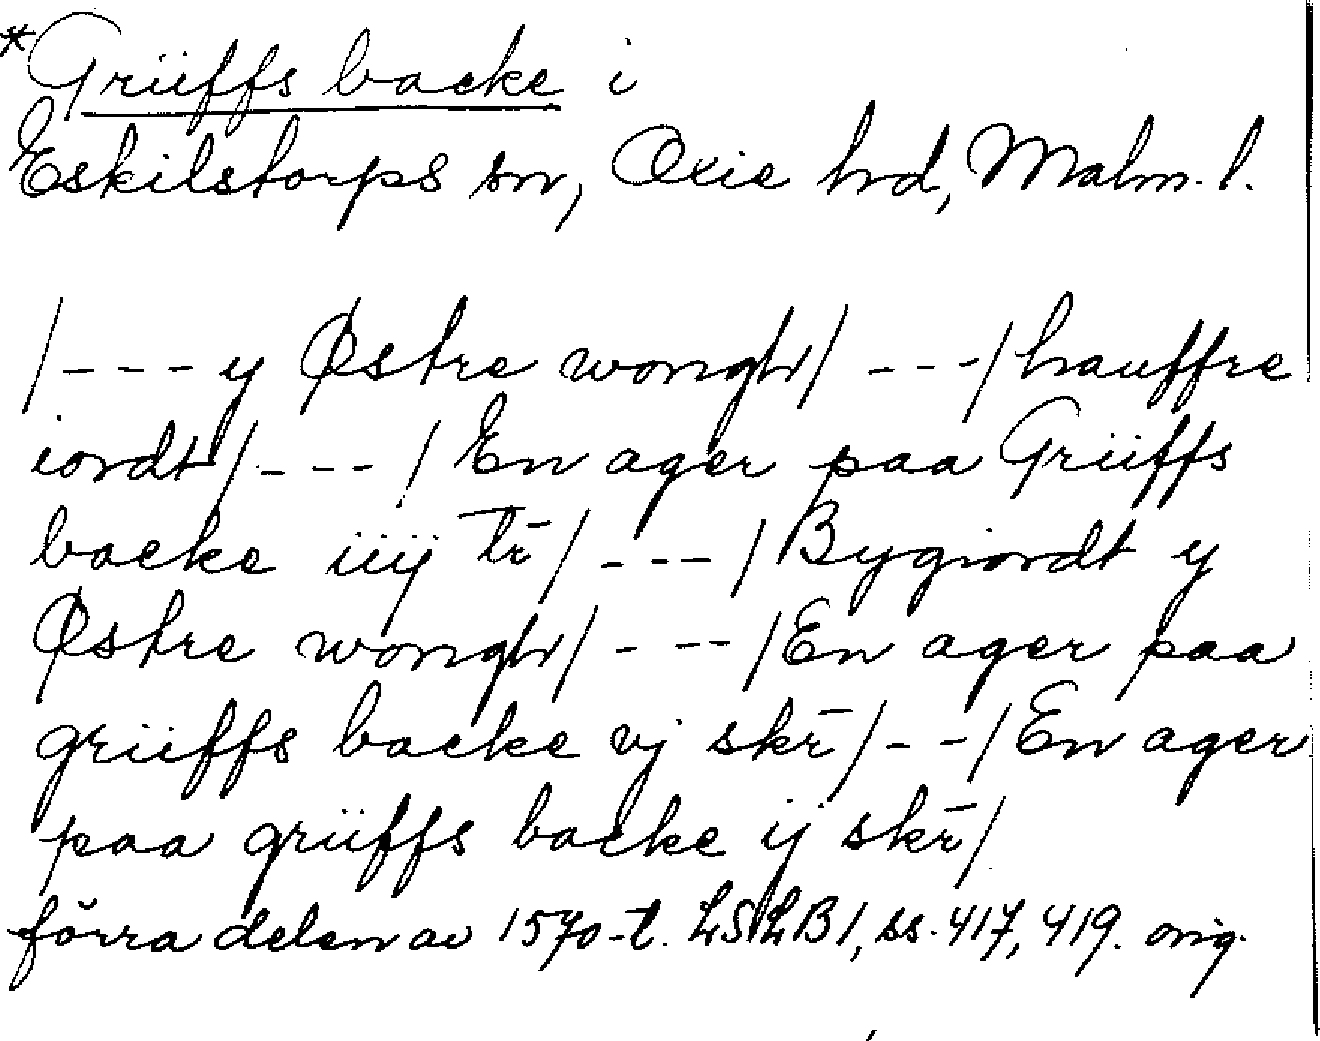 *Grüffs backe i
Eskilstorps sn, Oxie hd, Malm. l.
/--- y Østre wongh/ ---/ hauffre
iordt/--- / En ager paa Grüffs
backe iiij tr̄/ ---/ Bygiordt y
Østre wongh/ - --/ En ager paa
grüffs backe vj skr̄/- -/ En ager
paa grüffs backe ij skr̄/
förra delen av 1570-t. LSLB1, ss. 417, 419. orig.